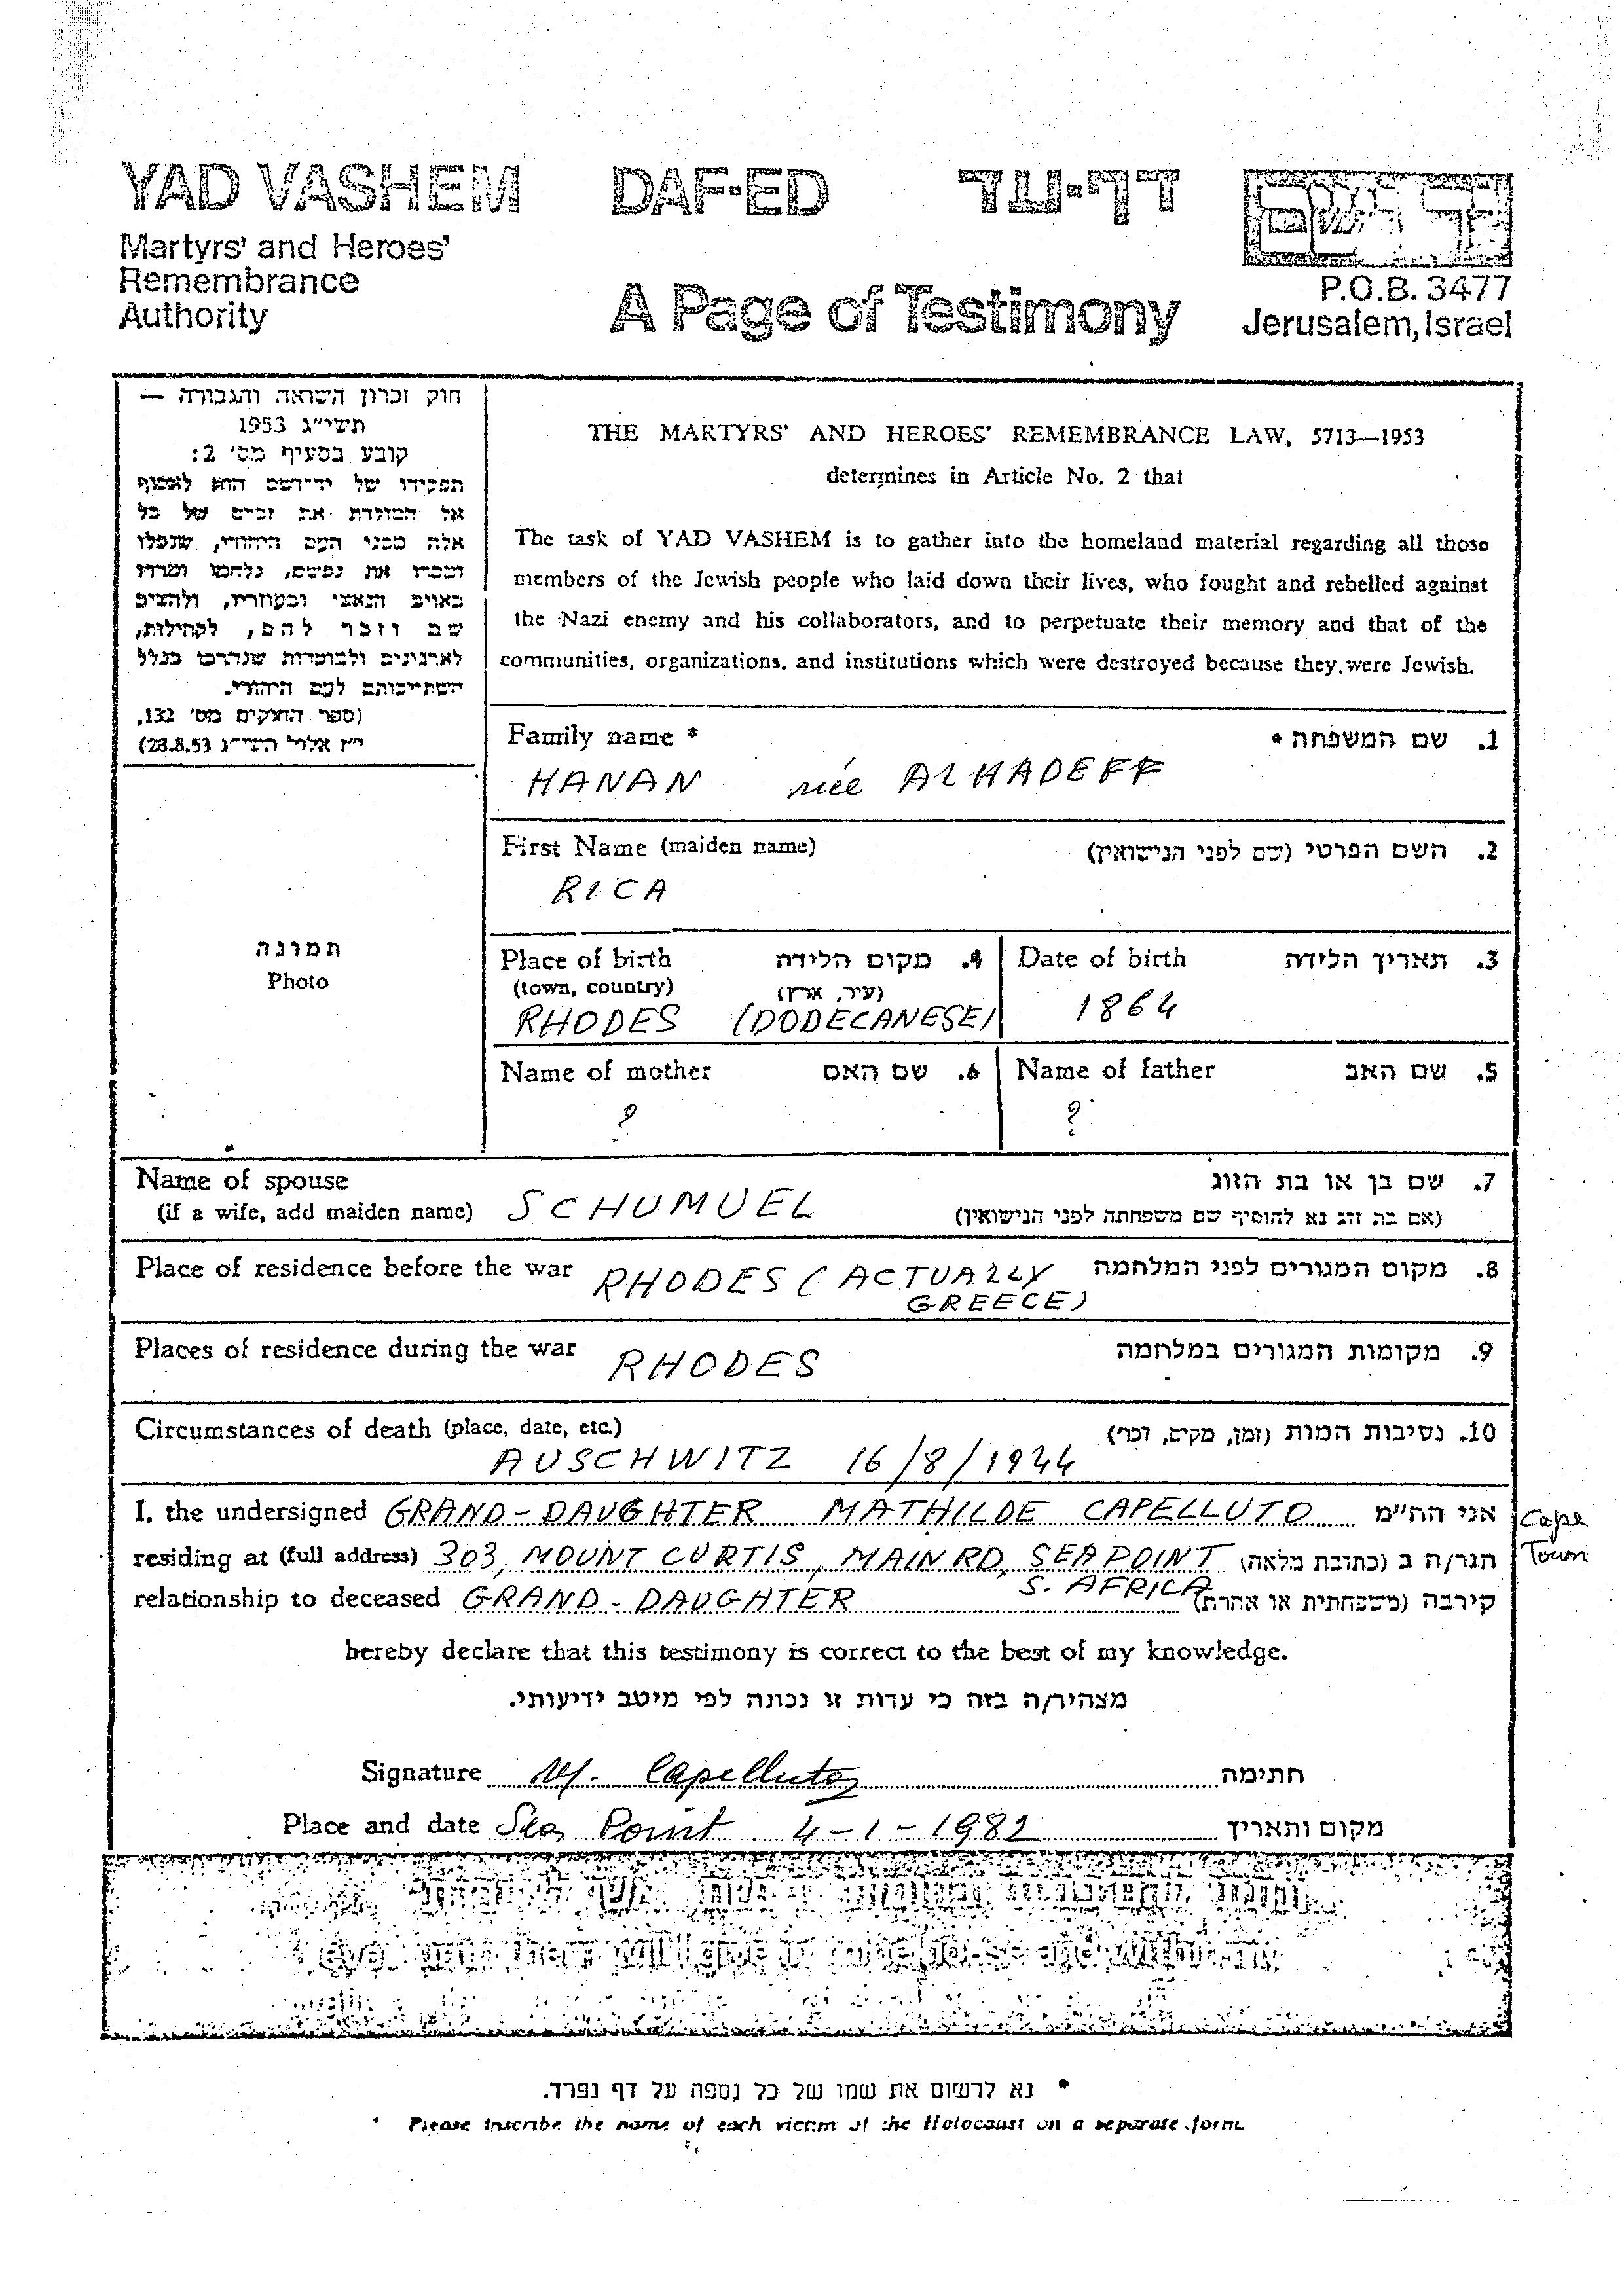 YAD VASHEM DAF-ED דף-עד יד ושם
Martyrs' and Heroes'
Remembrance
Authority
A Page of Testimony
P.O.B. 3477
Jerusalem, Israel
חוק זכרון השואה והגבורה —
תשי״ג 1953
קובע בסעיף מס׳ 2:
תפקידו של יד־ושם הוא לאסוף
אל המולדת את זכרם של כל
אלה מבני העם היהודי, שנפלו
ומסרו את נפשם, נלחמו ומרדו
באויב הנאצי ובעוזריו, ולהציב
שם וזכר להם, לקהילות,
לארגונים ולמוסדות שנחרבו בגלל
השתייכותם לעם היהודי.
(ספר החוקים מס׳ 132,
י״ז אלול תשי״ג 28.8.53)
THE MARTYRS' AND HEROES' REMEMBRANCE LAW, 5713—1953
determines in Article No. 2 that
The task of YAD VASHEM is to gather into the homeland material regarding all those
members of the Jewish people who laid down their lives, who fought and rebelled against
the Nazi enemy and his collaborators, and to perpetuate their memory and that of the
communities, organizations, and institutions which were destroyed because they were Jewish.
Family name * 1. שם המשפחה *
HANAN née ALHADEFF
First Name (maiden name) 2. השם הפרטי (שם לפני הנישואין)
RICA
תמונה
Photo
Place of birth 4. מקום הלידה
(town, country) (עיר, ארץ)
RHODES (DODECANESE)
Date of birth 3. תאריך הלידה
1864
Name of mother 6. שם האם
?
Name of father 5. שם האב
?
Name of spouse 7. שם בן או בת הזוג
(if a wife, add maiden name) SCHUMUEL (אם בת זוג נא להוסיף שם משפחתה לפני הנישואין)
Place of residence before the war RHODES (ACTUALLY 8. מקום המגורים לפני המלחמה
GREECE)
Places of residence during the war RHODES 9. מקומות המגורים במלחמה
Circumstances of death (place, date, etc.) 10. נסיבות המות (זמן, מקום, וכו׳)
AUSCHWITZ 16/8/1944
I, the undersigned GRAND-DAUGHTER MATHILDE CAPELLUTO אני הח״מ Cape
residing at (full address) 303, MOUNT CURTIS, MAIN RD, SEA POINT הגר/ה ב (כתובת מלאה) Town
S. AFRICA
relationship to deceased GRAND-DAUGHTER קירבה (משפחתית או אחרת)
hereby declare that this testimony is correct to the best of my knowledge.
מצהיר/ה בזה כי עדות זו נכונה לפי מיטב ידיעותי.
Signature M. Capelluto חתימה
Place and date Sea Point 4-1-1982 מקום ותאריך
will I give in mine house and within my
* נא לרשום את שמו של כל נספה על דף נפרד.
* Please inscribe the name of each victim of the Holocaust on a separate form.